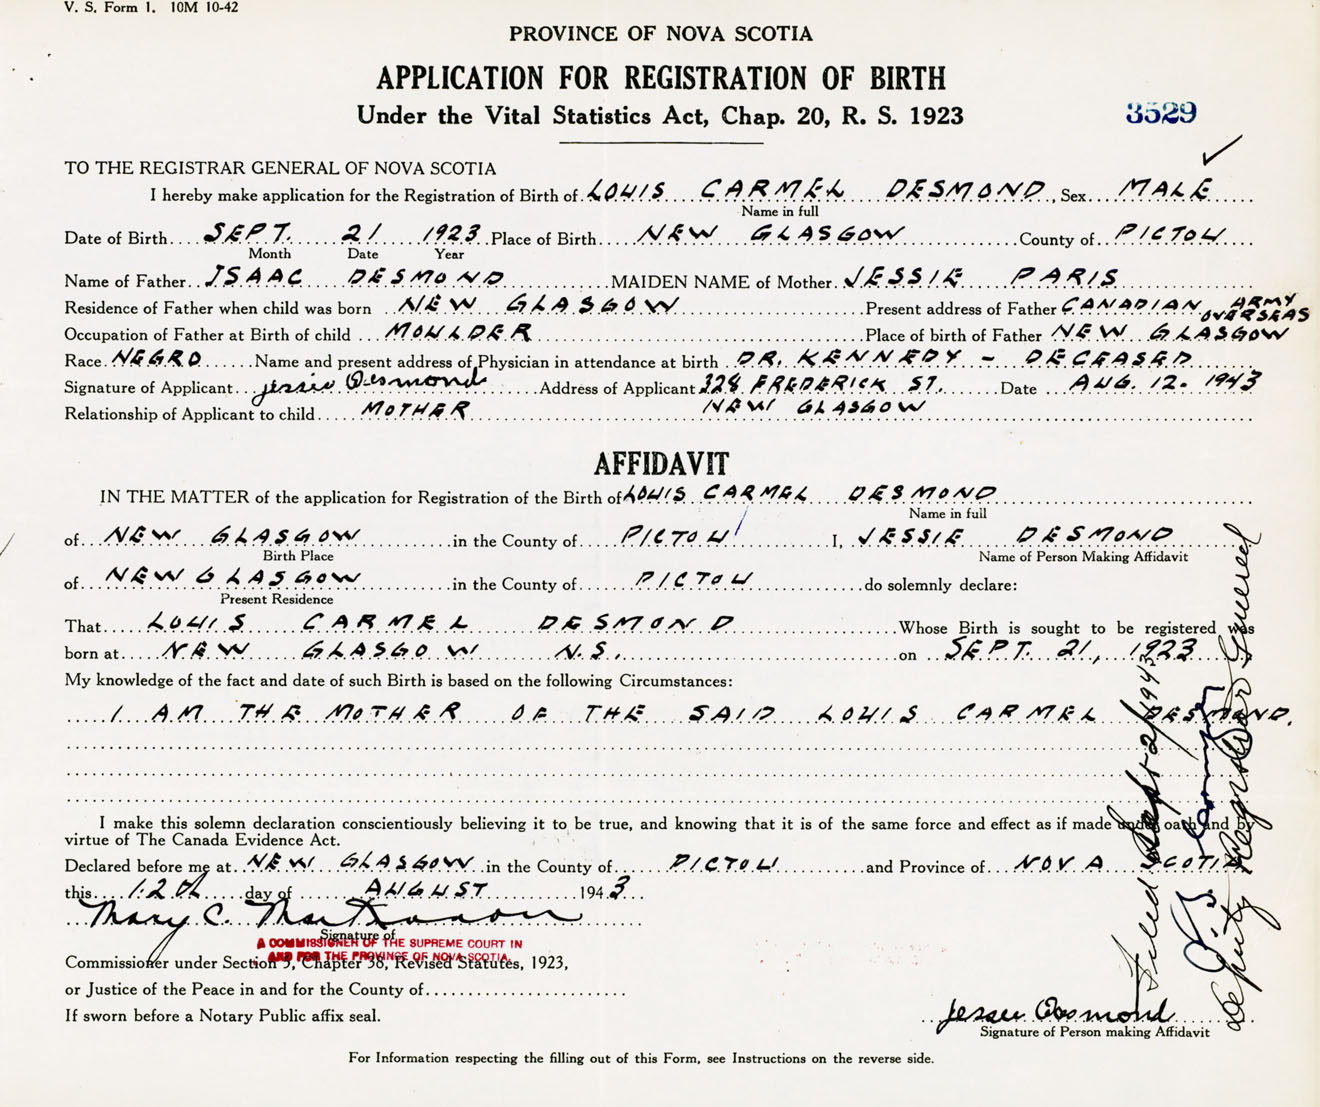 V. S. Form 1. 10M 10-42
PROVINCE OF NOVA SCOTIA
APPLICATION FOR REGISTRATION OF BIRTH
Under the Vital Statistics Act, Chap. 20, R. S. 1923
3529
TO THE REGISTRAR GENERAL OF NOVA SCOTIA
I hereby make application for the Registration of Birth of LOUIS CARMEL DESMOND, Sex MALE
Name in full
Date of Birth SEPT. 21 1923 Place of Birth NEW GLASGOW County of PICTOU
Month Date Year
Name of Father ISAAC DESMOND MAIDEN NAME of Mother JESSIE PARIS
Residence of Father when child was born NEW GLASGOW Present address of Father CANADIAN ARMY OVERSEAS
Occupation of Father at Birth of child MOULDER Place of birth of Father NEW GLASGOW
Race NEGRO Name and present address of Physician in attendance at birth DR. KENNEDY - DECEASED
Signature of Applicant Jessie Desmond Address of Applicant 328 FREDERICK ST. Date AUG. 12. 1943
Relationship of Applicant to child MOTHER NEW GLASGOW
AFFIDAVIT
IN THE MATTER of the application for Registration of the Birth of LOUIS CARMEL DESMOND
Name in full
of NEW GLASGOW in the County of PICTOU I, JESSIE DESMOND
Birth Place Name of Person Making Affidavit
of NEW GLASGOW in the County of PICTOU do solemnly declare:
Present Residence
That LOUIS CARMEL DESMOND Whose Birth is sought to be registered was
born at NEW GLASGOW N.S. on SEPT. 21, 1923
My knowledge of the fact and date of such Birth is based on the following Circumstances:
I AM THE MOTHER OF THE SAID LOUIS CARMEL DESMOND.
I make this solemn declaration conscientiously believing it to be true, and knowing that it is of the same force and effect as if made under oath and by
virtue of The Canada Evidence Act.
Declared before me at NEW GLASGOW in the County of PICTOU and Province of NOVA SCOTIA
this 12th day of AUGUST 1943
Mary C.
Signature of
A COMMISSIONER OF THE SUPREME COURT IN
AND FOR THE PROVINCE OF NOVA SCOTIA.
Commissioner under Section 3, Chapter 38, Revised Statutes, 1923,
or Justice of the Peace in and for the County of
If sworn before a Notary Public affix seal.
Jessie Desmond
Signature of Person making Affidavit
For Information respecting the filling out of this Form, see Instructions on the reverse side.
Filed Sept 2/1943
Deputy Registrar General